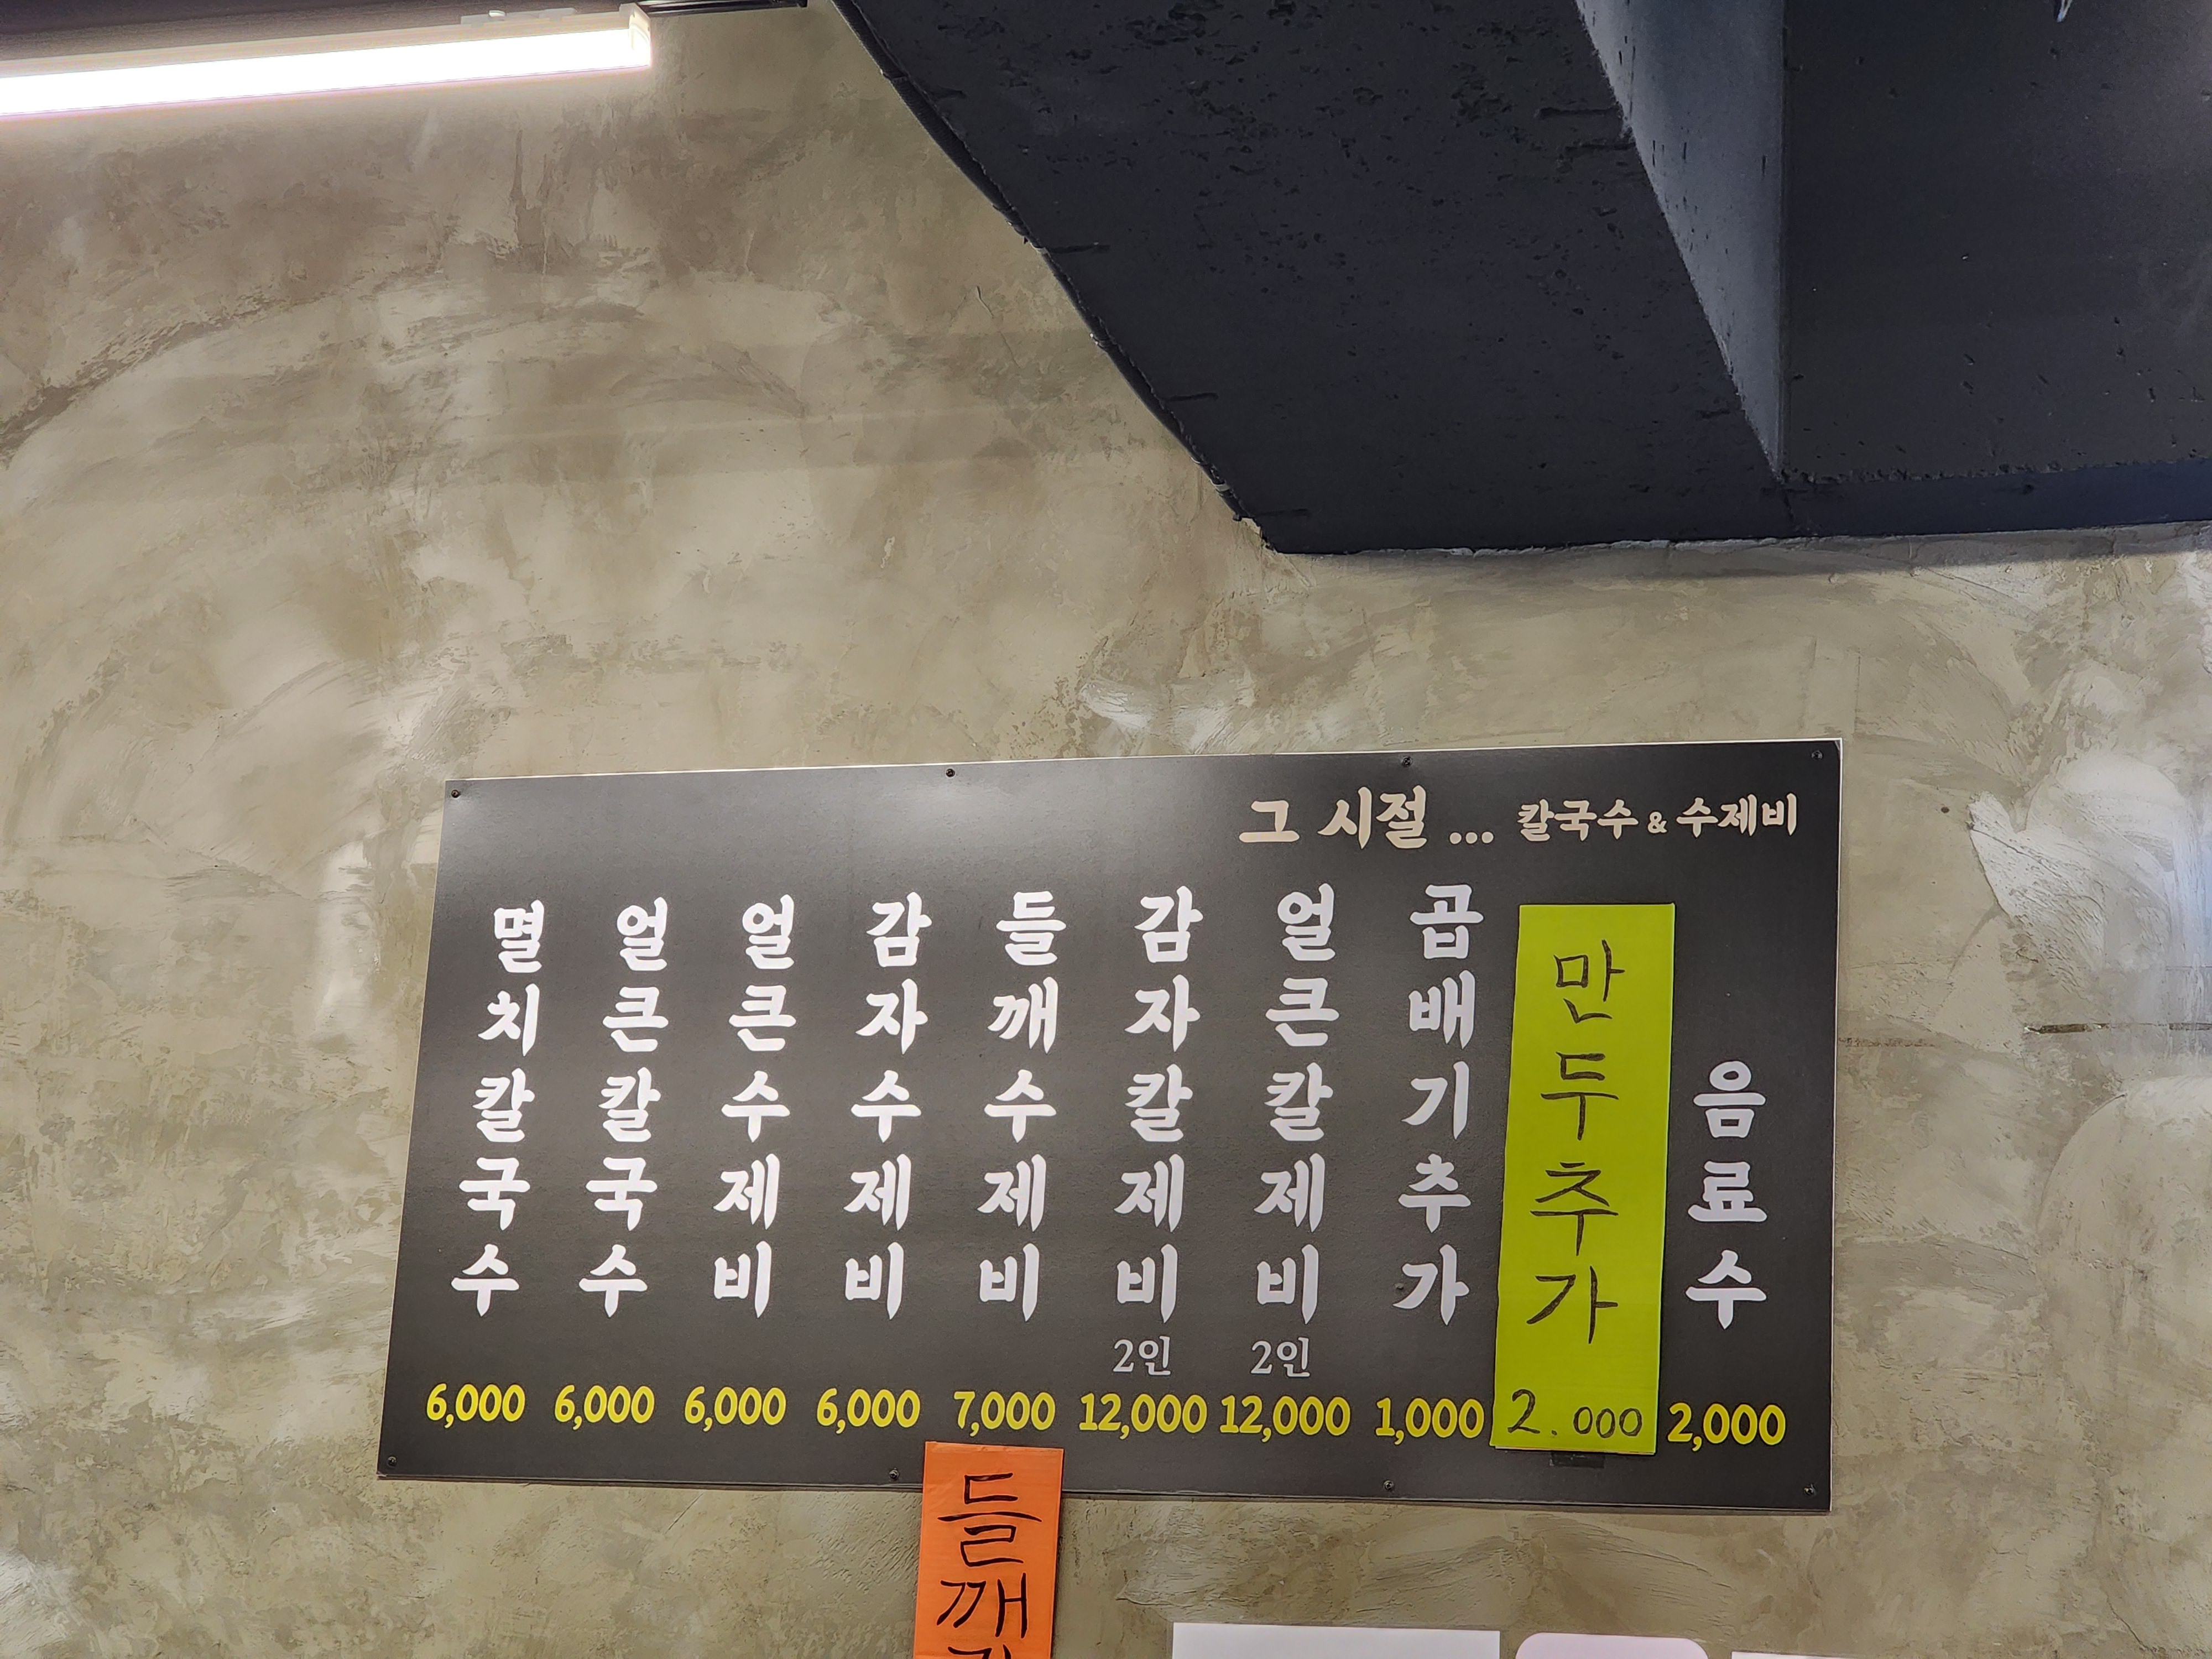 그 시절 ... 칼국수 & 수제비
멸치칼국수 6,000
얼큰칼국수 6,000
얼큰수제비 6,000
감자수제비 6,000
들깨수제비 7,000
감자칼제비 2인 12,000
얼큰칼제비 2인 12,000
곱배기추가 1,000
만두추가 2.000
음료수 2,000
들깨